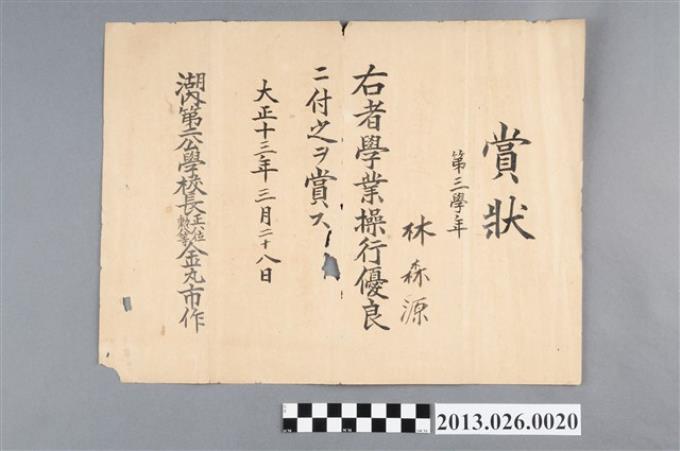 賞狀
第三學年
林森源
右者學業操行優良
ニ付之ヲ賞ス
大正十三年三月二十八日
第六公學校長正六位勲六等金丸市作
2013.026.0020